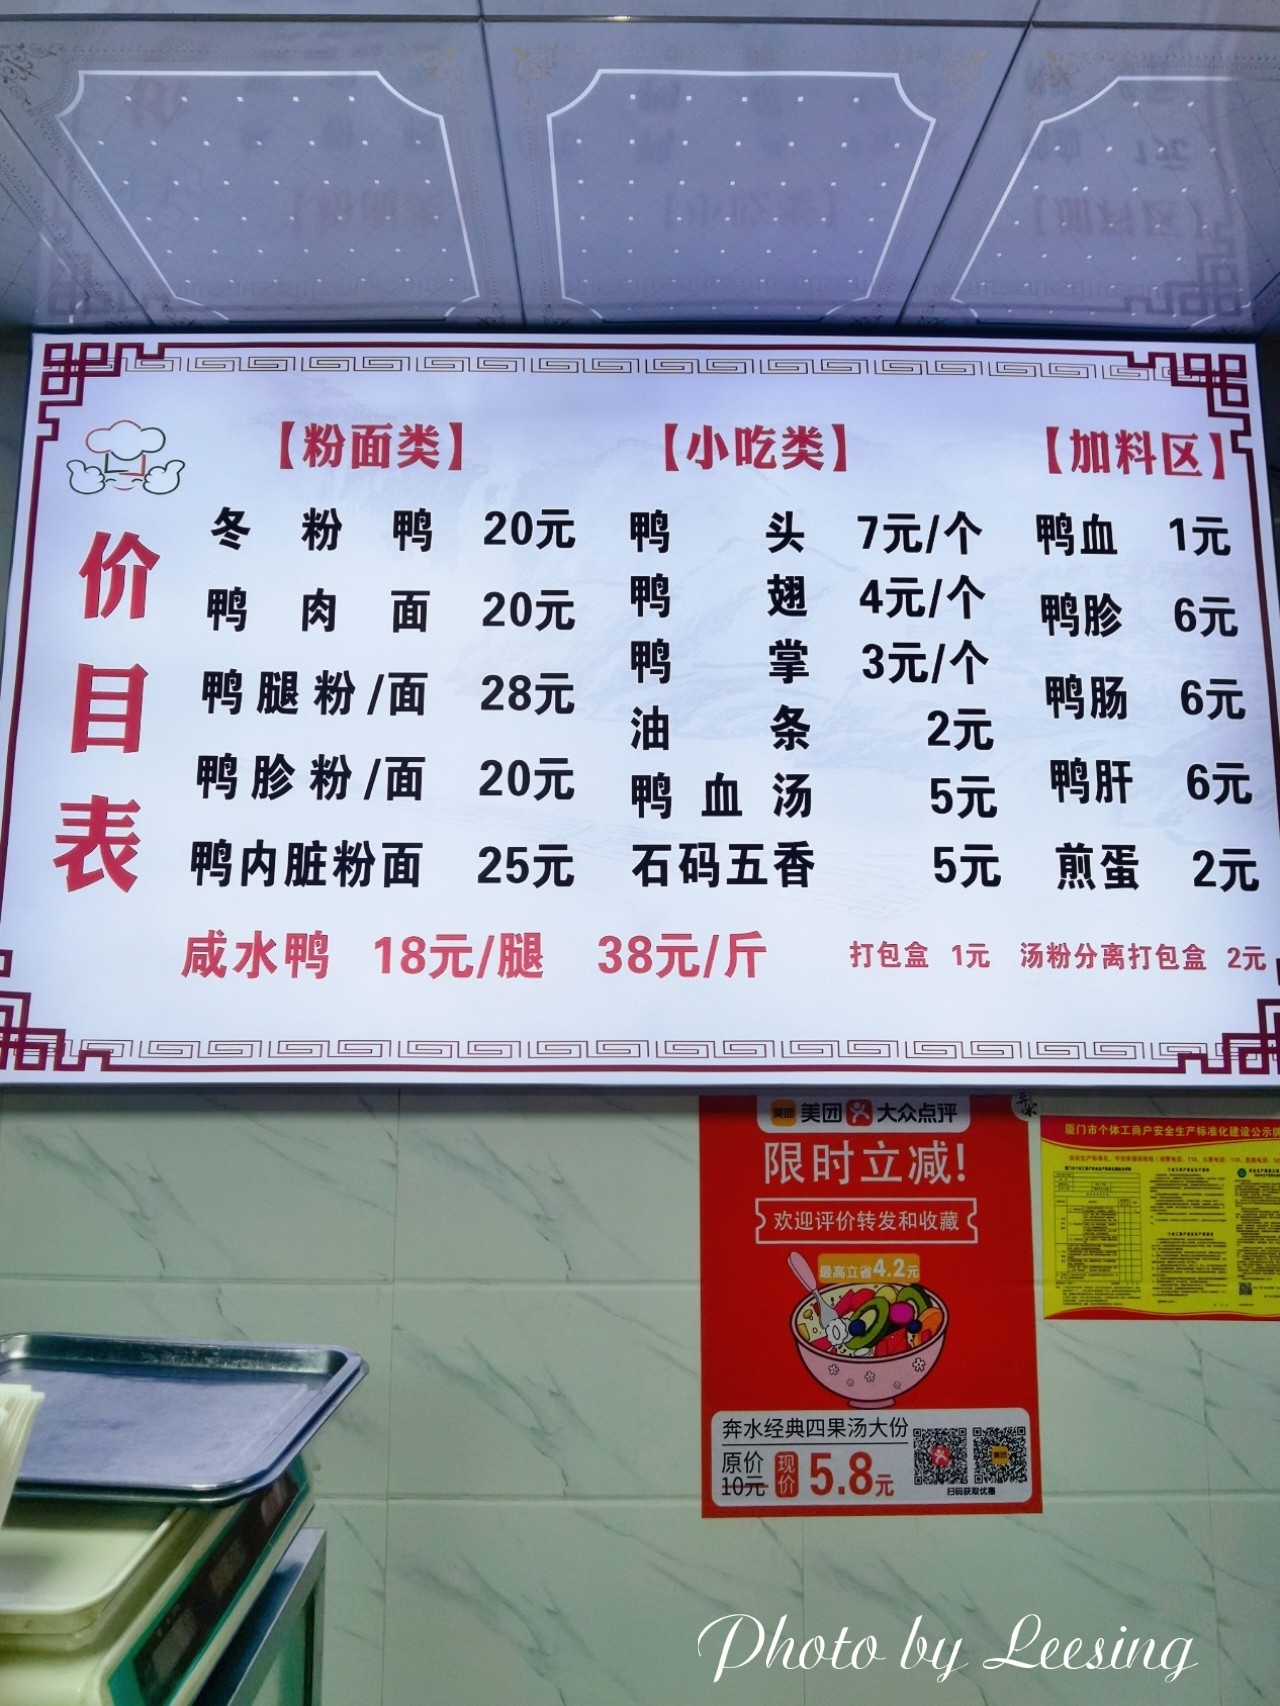 价目表
【粉面类】
冬粉鸭 20元
鸭肉面 20元
鸭腿粉/面 28元
鸭胗粉/面 20元
鸭内脏粉面 25元
【小吃类】
鸭头 7元/个
鸭翅 4元/个
鸭掌 3元/个
油条 2元
鸭血汤 5元
石码五香 5元
【加料区】
鸭血 1元
鸭胗 6元
鸭肠 6元
鸭肝 6元
煎蛋 2元
咸水鸭 18元/腿 38元/斤
打包盒 1元 汤粉分离打包盒 2元
美团 美团 大众点评
限时立减!
欢迎评价转发和收藏
最高立省4.2元
奔水经典四果汤大份
原价
10元
现价
5.8元
美团
扫码获取优惠
厦门市个体工商户安全生产标准化建设公示牌
Photo by Leesing